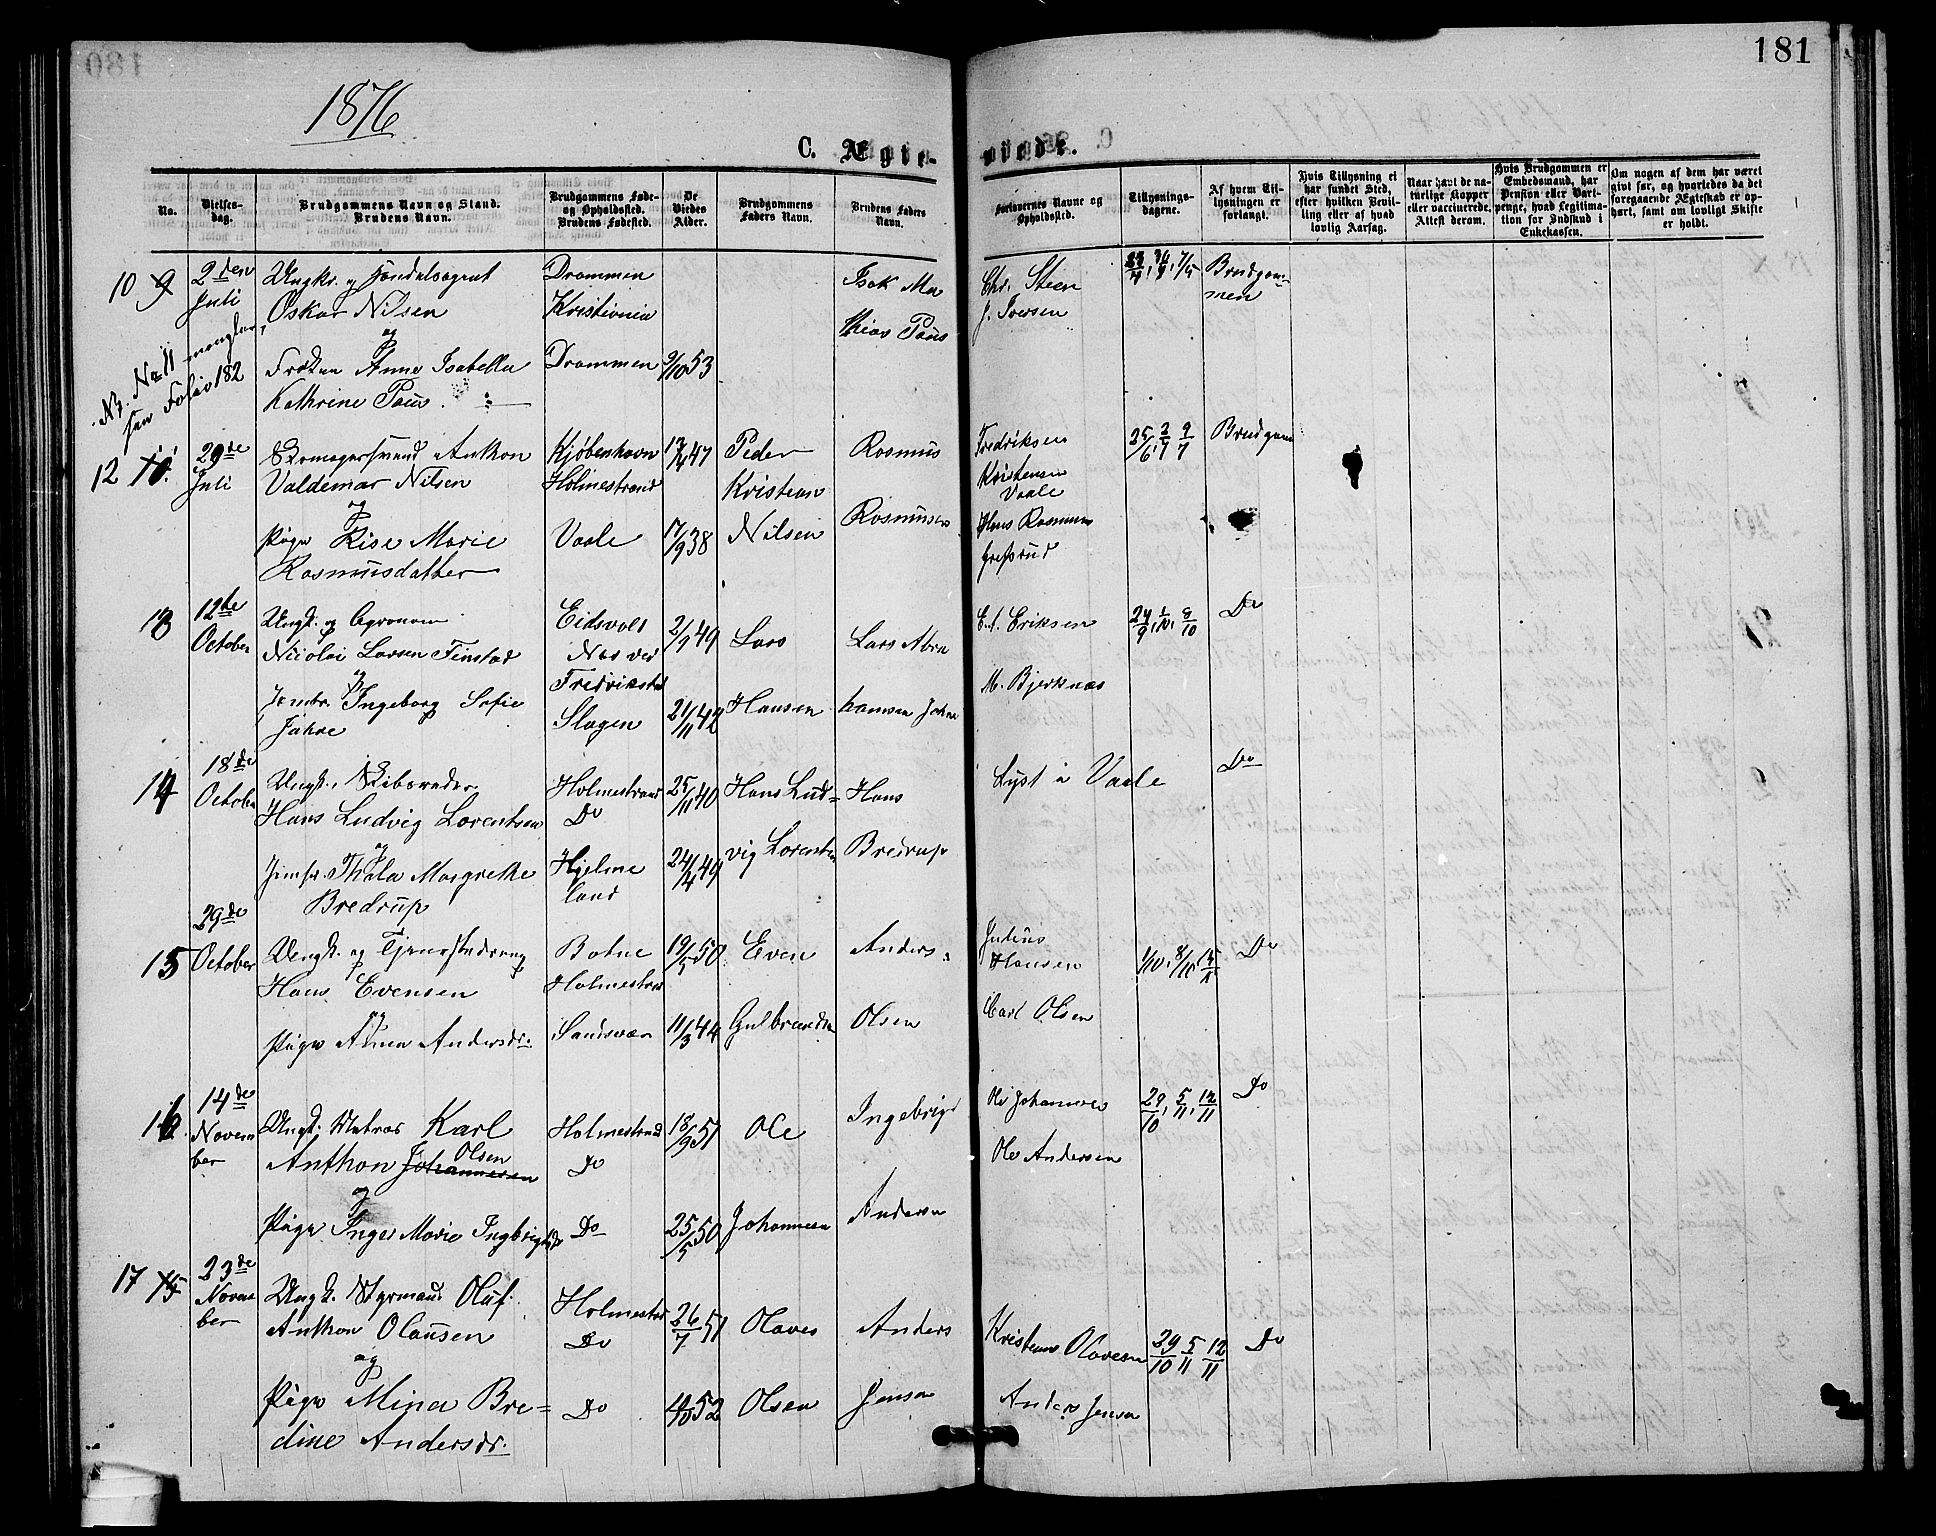 181
1876
C. Ægte-
viede.
No.
Vielses-
dag.
Brudgommens Navn og Stand.
Brudens Navn.
Brudgommens Føde-
og Opholdssted.
Brudens Fødested.
De
Viedes
Alder.
Brudgommens
Faders Navn.
Brudens Faders
Navn.
Forlovernes Navne og
Opholdssted.
Tillysnings-
dagene.
Af hvem Til-
lysningen er
forlangt.
Hvis Tillysning ei
har fundet Sted,
efter hvilken Bevil-
ling eller af hvad
lovlig Aarsag.
Naar havt de na-
turlige Kopper
eller vaccinerede.
Attest derom.
Hvis Brudgommen er
Embedsmand, har
Pension eller Vart-
penge, hvad Legitima-
tion for Indskud i
Enkekassen.
Om nogen af dem har været
gift før, og hvorledes da det
foregaaende Ægteskab er op-
hørt, samt om lovligt Skifte
er holdt.
10 9
2den
Juli
Ungkr. og Handelsagent
Oskar Nilsen
og
Frøken Anne Isabella
Kathrine Paus
Drammen
Kristiania
Drammen
9/10 53
Isak Ma
thias Paus
Chr. Steen
J. Iversen
7/5
Brudgom-
men
No 11 mangler,
Folio 182
12 10.
29de
Juli
Skomagersvend Anthon
Valdemar Nilsen
og
Pige Lise Marie
Rasmusdatter
Kjøbenhavn
Holmestrand
Vaale
13/4 47
17/9 38
Peder
Kristian
Nilsen
Rasmus
Rasmusen
Fredriksen
Kristensen
Vaale
Hans Rasmusen
25/6, 2/7 9/7
Brudgom
13
12te
October
Ungk. og Agronom
Nicolai Larsen Finstad
og
Jomfr. Ingeborg Sofie
Jahre
Eidsvold
Næs ved
Fredrikstad
Slagen
2/9 49
21/11 42
Lars
Hansen
Lars Abra
hamsen Jahre
E. A. Eriksen
M. Bjerknæs
24/9, 1/10, 8/10
Do
14
18de
October
Ungk. Skibsreder
Hans Ludvig Lorentsen
og
Jomfr. Thala Margrethe
Bredrup
Holmestrand
Do
Hjelme
land
25/11 40
24/4 49
Hans Lud-
vig Lorentsen
Hans
Bredrup
Lyst i Vaale
Do
15
29de
October
Ungk. og Tjenestedreng
Hans Evensen
og
Pige Anna Andersdr.
Botne
Holmestrand
Sandsvær
19/5 50
11/3 44
Even
Gulbrandsen
Anders
Olsen
Julius
Hansen
Carl Olsen
1/10, 8/10, 15/10
Do
16
14de
Novem
ber
Ungk. Matros Karl
Olsen
Anthon Johannesen
og
Pige Inger Marie Ingbrigtsdr
Holmestrand
Do
Do
18/9 51
25/5 50
Ole
Johannesen
Ingebrigt
Andersen
Ole Johannes
Ole Andersen
29/10, 5/11, 12/11
Do
17 15
23de
Novem
ber
Ungk. Styrmand Oluf
Anthon Olausen
og
Pige Mina Bre-
dine Andersdr.
Holmestrand
Do
Do
26/7 51
4/10 52
Olaves
Olsen
Anders
Jensen
Kristians Olavesen
Anders Jensen
29/10 5/11 12/11
Do